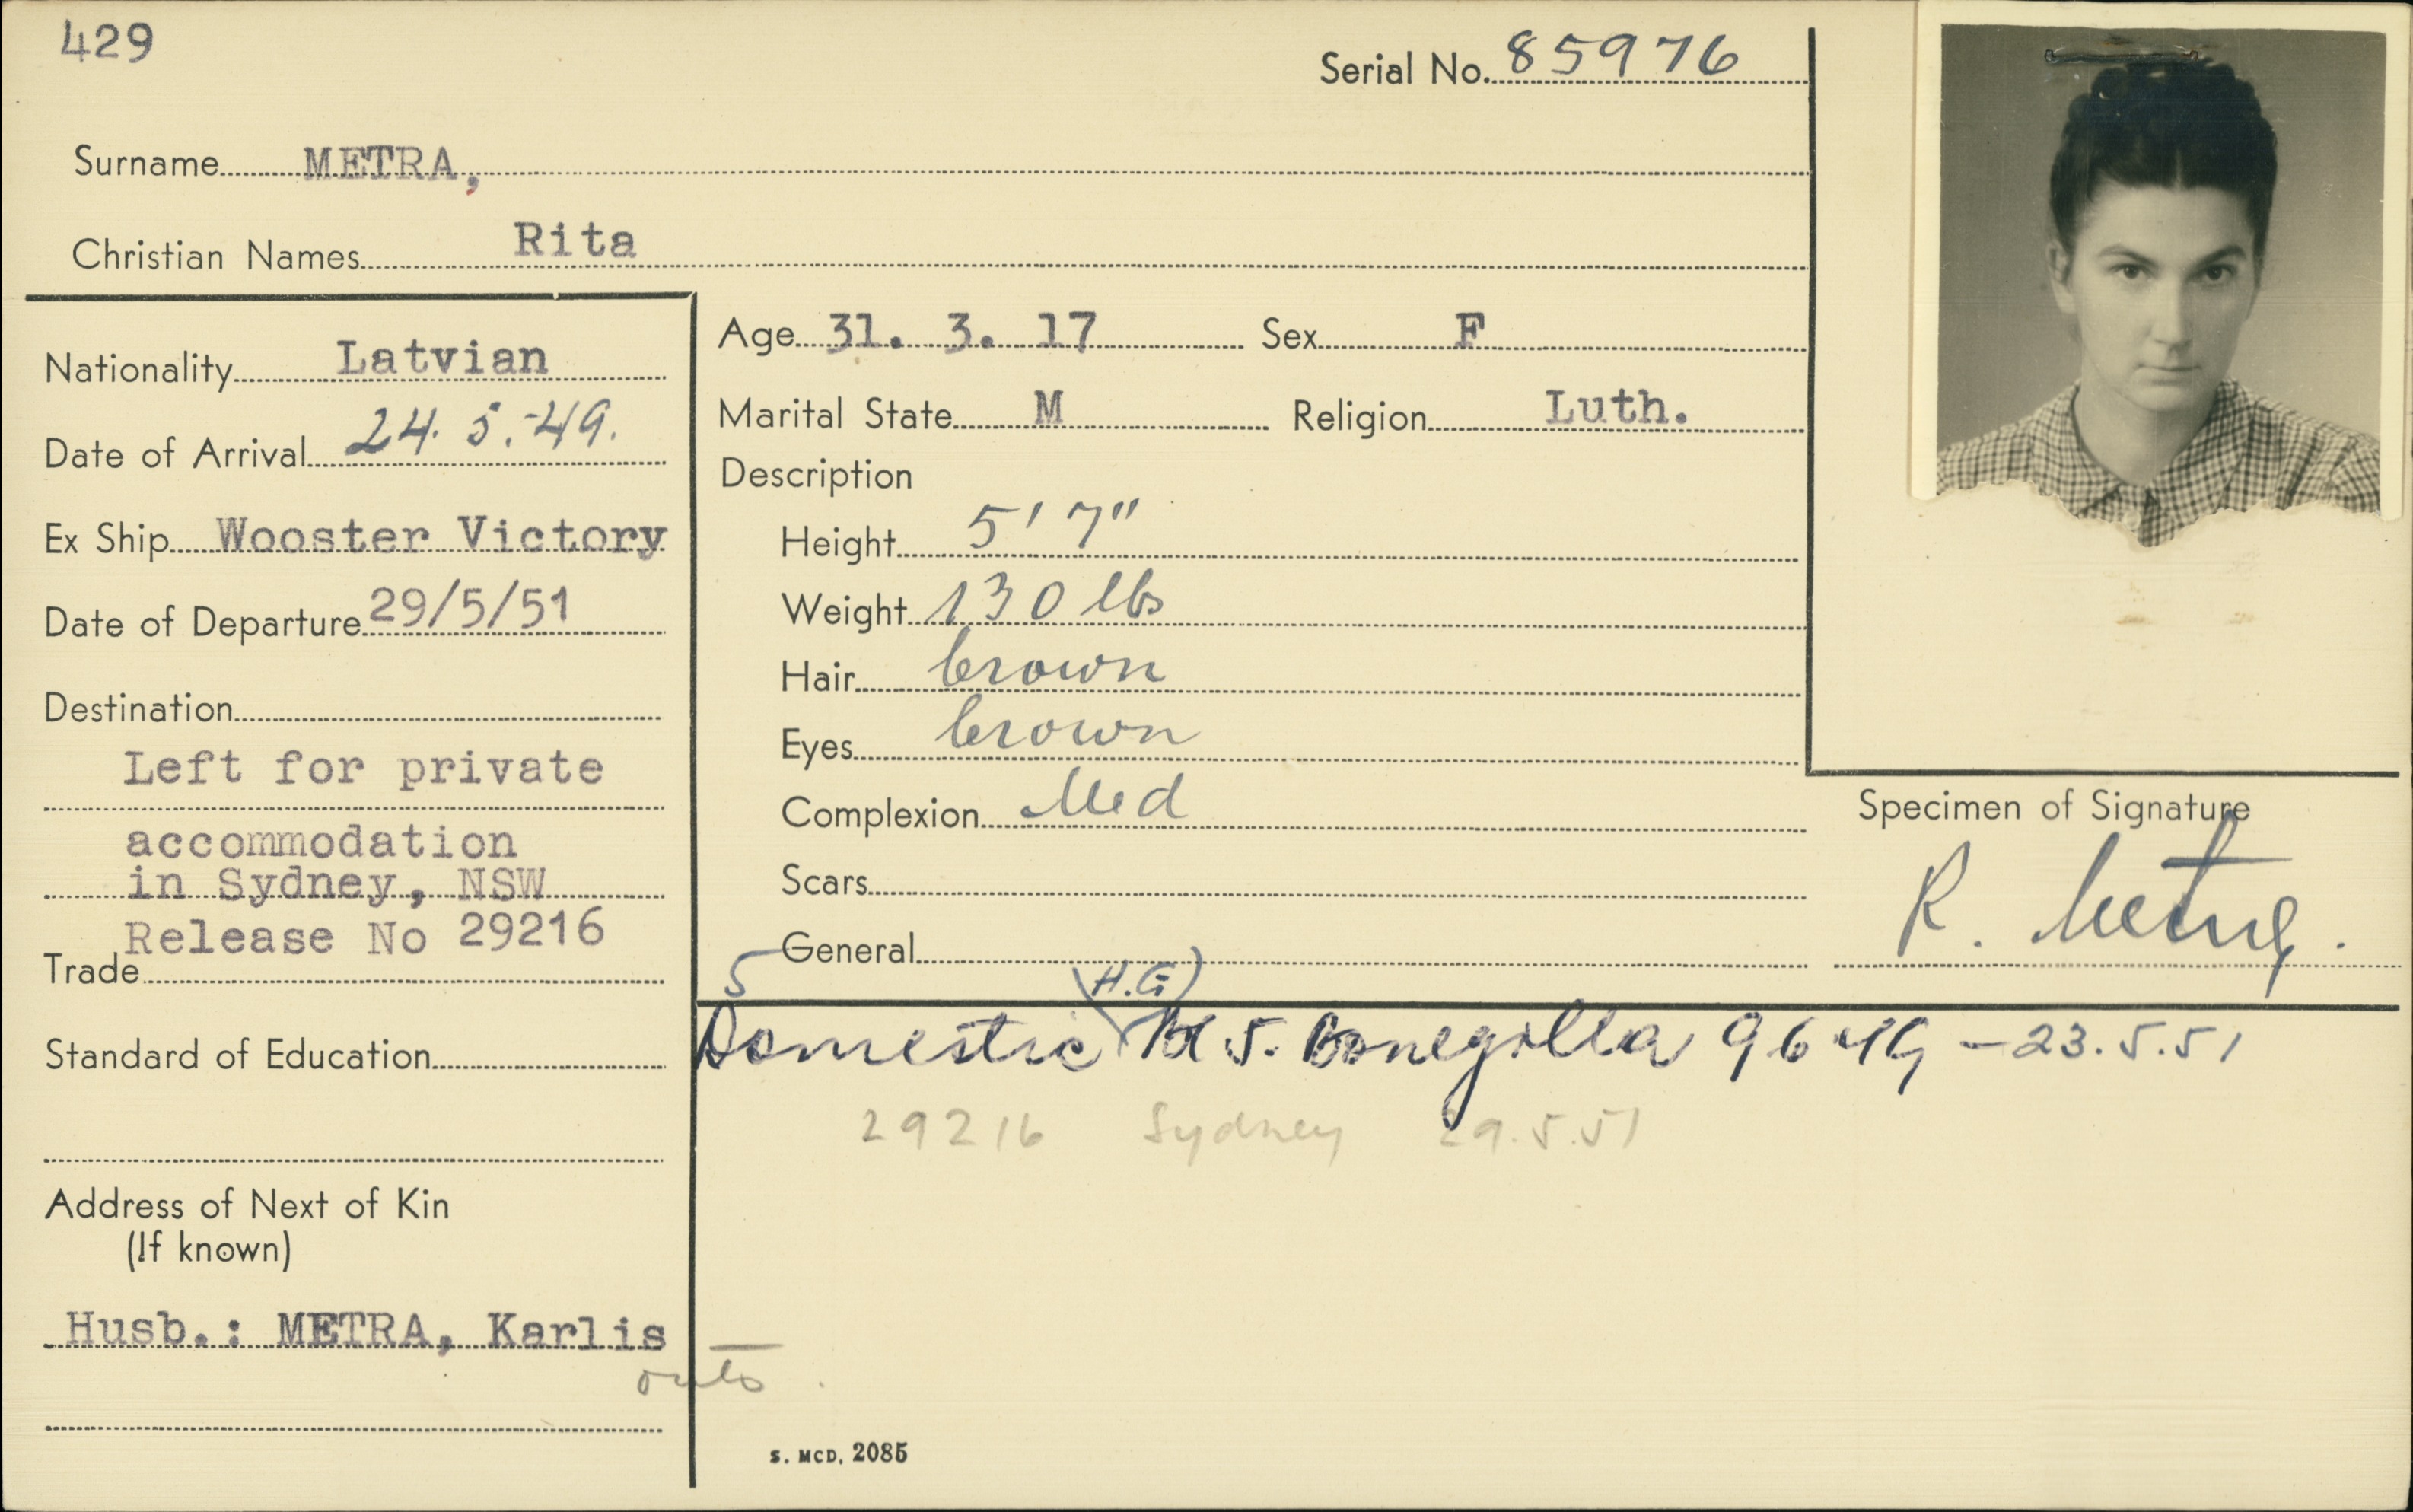 429
Serial No. 85976
Surname METRA,
Christian Names Rita
Nationality Latvian
Date of Arrival 24. 5.-49.
Ex Ship Wooster Victory
Date of Departure 29/5/51
Destination
Left for private
accommodation
in Sydney, NSW
Release No 29216
Trade
Standard of Education
Address of Next of Kin
(If known)
Husb.: METRA, Karlis
Age 31. 3. 17 Sex F
Marital State M Religion Luth.
Description
Height 5' 7"
Weight 130 lbs
Hair brown
Eyes brown
Complexion Med
Scars
General
Specimen of Signature
R. Metra.
5
(H.G)
Domestic Bonegilla 9 6 49 - 23.5.51
29216 Sydney 29.5.51
S. MCD. 2085